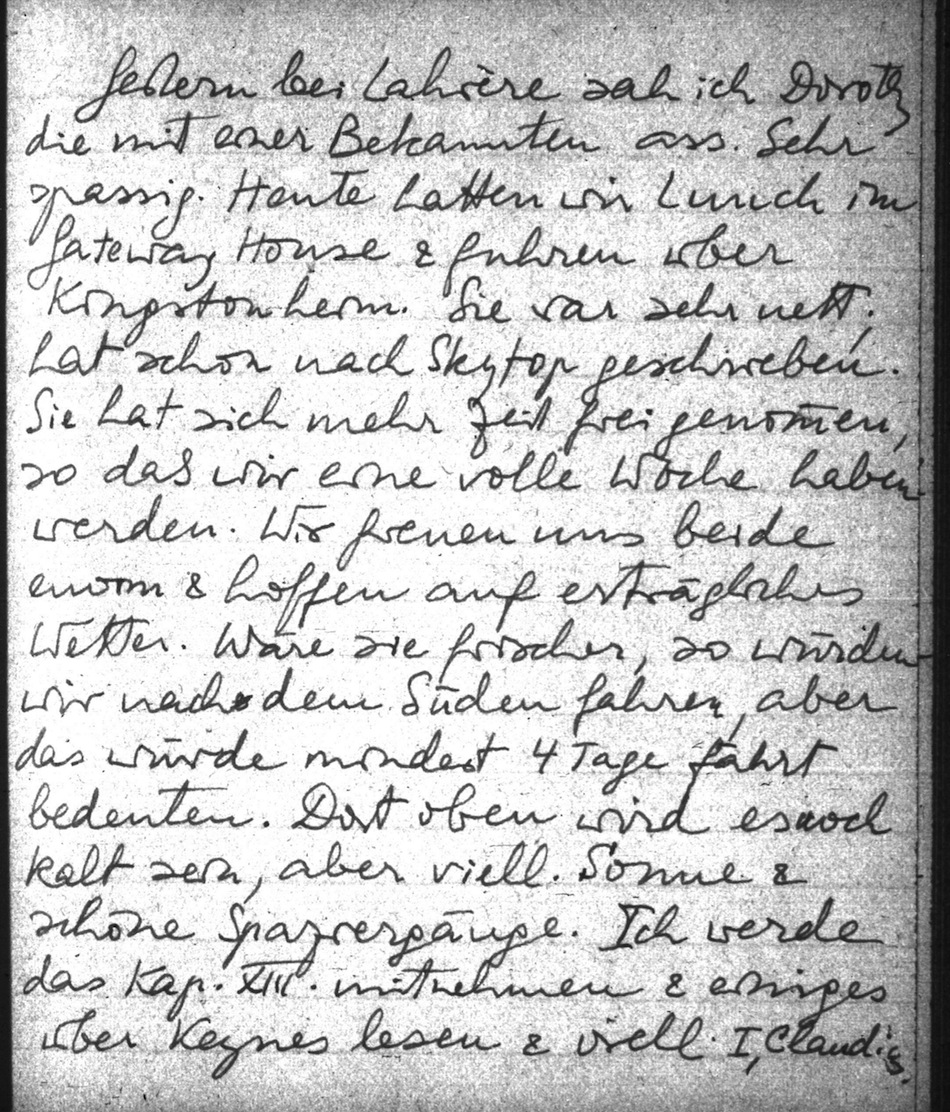 Gestern bei Lahière sah ich Doroth
die mit einer Bekannten ass. Sehr
spassig. Heute hatten wir Lunch im
Gateway House & fuhren über
Kingston heim. Sie war sehr nett,
hat schon nach Skytop geschrieben.
Sie hat sich mehr Zeit frei genom̄en,
so daß wir eine volle Woche haben
werden. Wir freuen uns beide
enorm & hoffen auf erträgliches
Wetter. Wäre sie frischer, so würden
wir nach dem Süden fahren, aber
das würde mindest 4 Tage Fahrt
bedeuten. Dort oben wird es noch
kalt sein, aber viell. Sonne &
schöne Spaziergänge. Ich werde
das Kap. XIII. mitnehmen & einiges
über Keynes lesen & viell. I, Claudius.